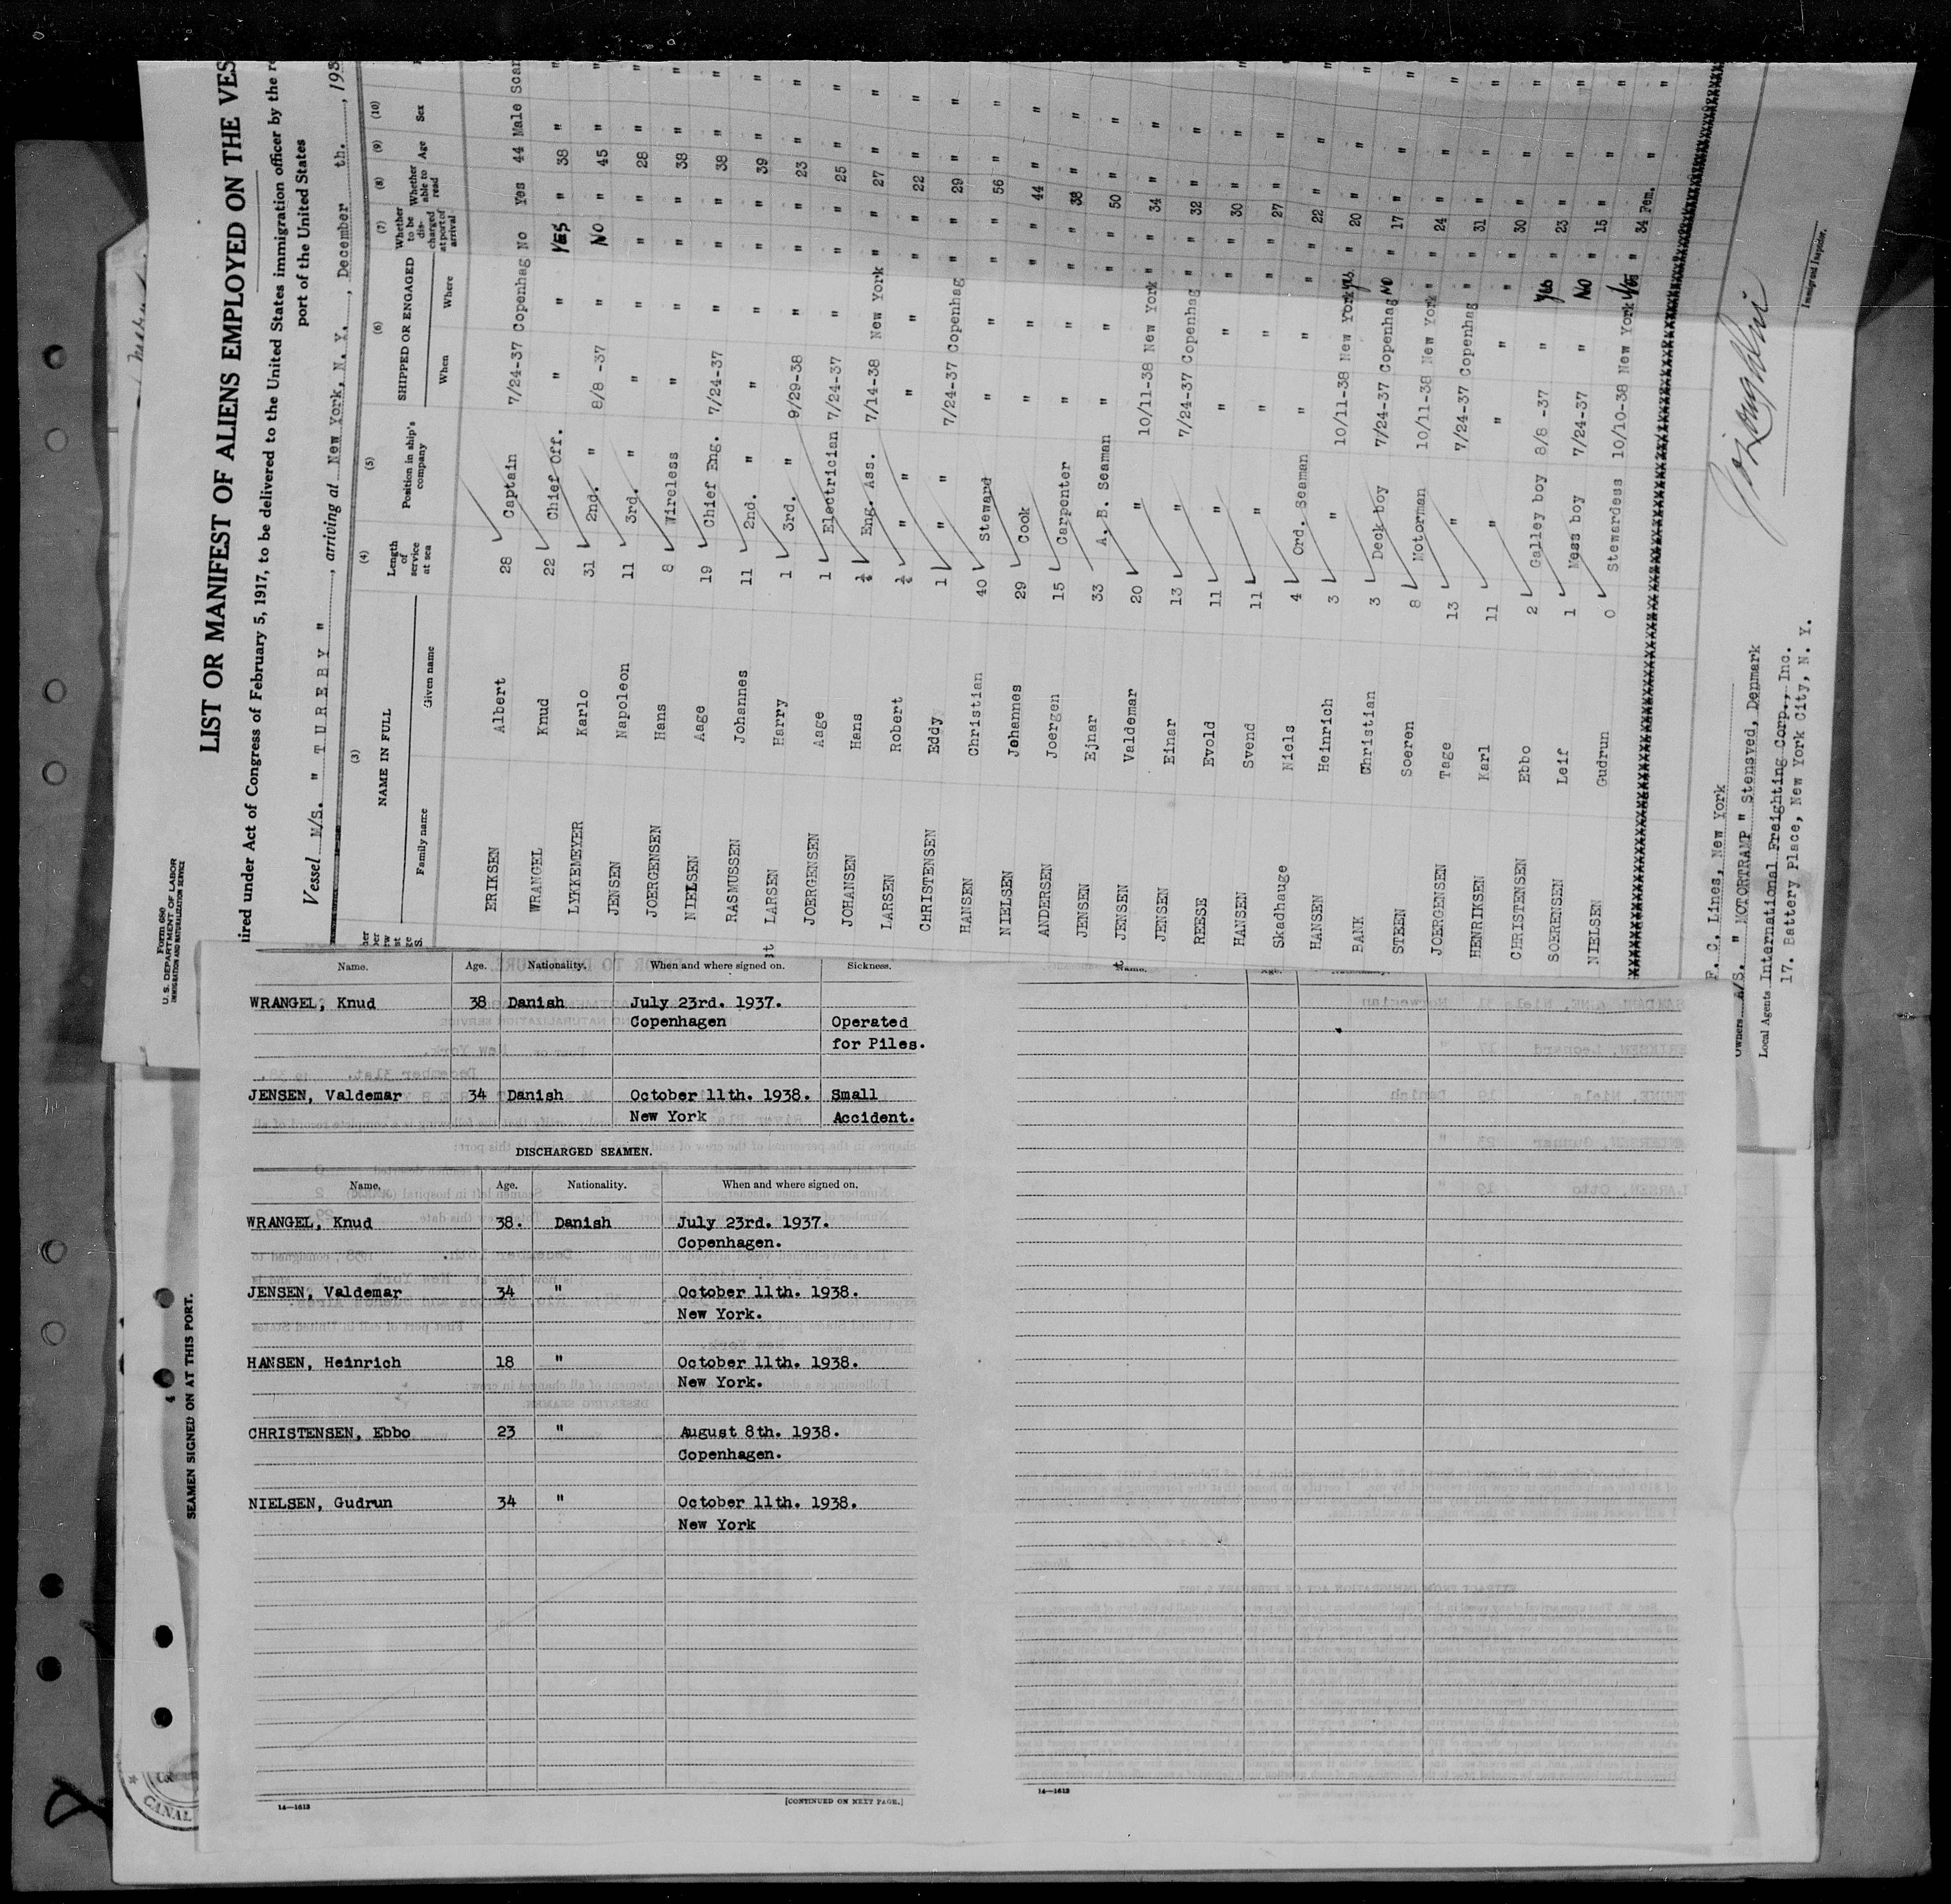 Form 680
U. S. DEPARTMENT OF LABOR
IMMIGRATION AND NATURALIZATION SERVICE
LIST OR MANIFEST OF ALIENS EMPLOYED ON THE VES
ired under Act of Congress of February 5, 1917, to be delivered to the United States immigration officer by the re
port of the United States
Vessel M/S. " TUREBY ", arriving at New York, N. Y., December th., 193
(3) (4) (5) (6) (7) (8) (9) (10)
NAME IN FULL Length of service at sea Position in ship's company SHIPPED OR ENGAGED Whether to be discharged at port of arrival Whether able to read Age Sex
Family name Given name When Where
ERIKSEN Albert 28 Captain 7/24-37 Copenhag No Yes 44 Male Scan
WRANGEL Knud 22 Chief Off. " " YES " 38 " "
LYKKEMEYER Karlo 31 2nd. " 8/8 -37 " NO " 45 " "
JENSEN Napoleon 11 3rd. " " " " " 28 " "
JOERGENSEN Hans 8 Wireless " " " " 38 " "
NIELSEN Aage 19 Chief Eng. 7/24-37 " " " 38 " "
RASMUSSEN Johannes 11 2nd. " " " " " 39 " "
LARSEN Harry 1 3rd. " 9/29-38 " " " 23 " "
JOERGENSEN Aage 1 Electrician 7/24-37 " " " 25 " "
JOHANSEN Hans ½ Eng. Ass. 7/14-38 New York " " 27 " "
LARSEN Robert ½ " " " " " " 22 " "
CHRISTENSEN Eddy 1 " " 7/24-37 Copenhag " " 29 " "
HANSEN Christian 40 Steward " " " " 56 " "
NIELSEN Johannes 29 Cook " " " " 44 " "
ANDERSEN Joergen 15 Carpenter " " " " 38 " "
JENSEN Ejnar 33 A. B. Seaman " " " " 50 " "
JENSEN Valdemar 20 " 10/11-38 New York " " 34 " "
JENSEN Einar 13 " 7/24-37 Copenhag " " 32 " "
REESE Evold 11 " " " " " 30 " "
HANSEN Svend 11 " " " " " 27 " "
Skadhauge Niels 4 Ord. Seaman " " " " 22 " "
HANSEN Heinrich 3 " 10/11-38 New York yes " 20 " "
BANK Christian 3 Deck boy 7/24-37 Copenhag NO " 17 " "
STEEN Soeren 8 Motorman 10/11-38 New York " " 24 " "
JOERGENSEN Tage 13 " 7/24-37 Copenhag " " 31 " "
HENRIKSEN Karl 11 " " " " " 30 " "
CHRISTENSEN Ebbo 2 Galley boy 8/8 -37 " yes " 23 " "
SOERENSEN Leif 1 Mess boy 7/24-37 " NO " 15 " "
NIELSEN Gudrun 0 Stewardess 10/10-38 New York yes " 34 Fem. "
Immigrant Inspector.
F. C. Lines, New York
Owners A/S. " MOTORTRAMP " Stensved, Denmark
Local Agents International Freighting Corp., Inc.
17. Battery Place, New York City, N. Y.
Name. Age. Nationality. When and where signed on. Sickness.
WRANGEL, Knud 38 Danish July 23rd. 1937.
Copenhagen Operated
for Piles.
JENSEN, Valdemar 34 Danish October 11th. 1938. Small
New York Accident.
DISCHARGED SEAMEN.
Name. Age. Nationality. When and where signed on.
WRANGEL, Knud 38. Danish July 23rd. 1937.
Copenhagen.
JENSEN, Valdemar 34 " October 11th. 1938.
New York.
HANSEN, Heinrich 18 " October 11th. 1938.
New York.
CHRISTENSEN, Ebbo 23 " August 8th. 1938.
Copenhagen.
NIELSEN, Gudrun 34 " October 11th. 1938.
New York
14—1613
[CONTINUED ON NEXT PAGE.]
14—1613
4
SEAMEN SIGNED ON AT THIS PORT.
CANAL